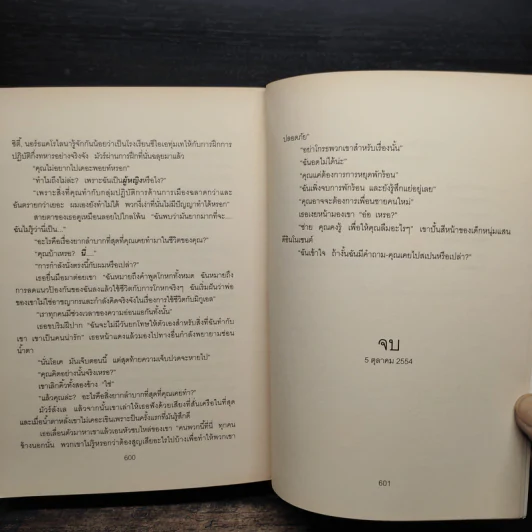 ซิตี้, นอร์ธแคโรไลนารู้จักกันน้อยว่าเป็นโรงเรียนซีไอเอทุ่มเทให้กับการฝึกการ
ปฏิบัติกึ่งทหารอย่างจริงจัง มัวร์ผ่านการฝึกที่นั่นฉลุยมาแล้ว
"คุณไม่อยากไปเดอะพอยท์หรอก"
"ทำไมถึงไม่ล่ะ? เพราะฉันเป็นผู้หญิงหรือไง?"
"เพราะสิ่งที่คุณทำกับกลุ่มปฏิบัติการด้านการเมืองฉลาดกว่าและ
อันตรายกว่าเยอะ ผมเองยังทำไม่ได้ พวกงี่เง่าที่นั่นไม่มีปัญญาทำได้หรอก"
สายตาของเธอดูเหมือนลอยไปไกลโพ้น "ฉันพบว่ามันยากมากที่จะ...
ฉันไม่รู้ว่านี่เป็น..."
"อะไรคือเรื่องยากลำบากที่สุดที่คุณเคยทำมาในชีวิตของคุณ?"
"คุณบ้าเหรอ? นี่...."
"การกำลังนั่งตรงนี้กับผมหรือเปล่า?"
เธอยื่นมือมาต่อยเขา "ฉันหมายถึงคำพูดโกหกทั้งหมด ฉันหมายถึง
การลดแนวป้องกันของฉันลงแล้วใช้ชีวิตกับการโกหกจริงๆ ฉันเริ่มฝันว่าพ่อ
ของเขาไม่ใช่อาชญากรและกำลังคิดจริงจังในเรื่องการใช้ชีวิตกับมิกูเอล"
"เราทุกคนมีช่วงเวลาของความอ่อนแอกันทั้งนั้น"
เธอขบริมฝีปาก "ฉันจะไม่มีวันยกโทษให้ตัวเองสำหรับสิ่งที่ฉันทำกับ
เขา เขาเป็นคนน่ารัก" เธอหน้าแดงแล้วมองไปทางอื่นกำลังพยายามซ่อน
น้ำตา
"นั่นโอเค มันเจ็บตอนนี้ แต่สุดท้ายความเจ็บปวดจะหายไป"
"คุณคิดอย่างนั้นจริงเหรอ?"
เขาเลิกคิ้วทั้งสองข้าง "ใช่"
"แล้วคุณล่ะ? อะไรคือสิ่งยากลำบากที่สุดที่คุณเคยทำ?"
มัวร์ลังเล แล้วจากนั้นเขาเล่าให้เธอฟังด้วยเสียงที่สั่นเครือในที่สุด
และเมื่อน้ำตาหลั่งเขาไม่เคอะเขินเพราะเป็นครั้งแรกที่มันรู้สึกดี
เธอเลื่อนตัวมาหาเขาแล้วเอนหัวซบไหล่ของเขา "คนพวกนี้ที่นี่ ทุกคน
ข้างนอกนั่น พวกเขาไม่รู้หรอกว่าต้องสูญเสียอะไรไปบ้างเพื่อทำให้พวกเขา
600
ปลอดภัย"
"อย่าโกรธพวกเขาสำหรับเรื่องนั้น"
"ฉันอดไม่ได้น่ะ"
"คุณแค่ต้องการการหยุดพักร้อน"
"ฉันเพิ่งจบการพักร้อน และยังรู้สึกแย่อยู่เลย"
"คุณอาจจะต้องการเพื่อนชายคนใหม่"
เธอเงยหน้ามองเขา "อ๋อ เหรอ?"
"ช่าย คุณคงรู้ เพื่อให้คุณลืมอะไรๆ" เขาปั้นสีหน้าของเด็กหนุ่มแสน
ดีอินโนเซนต์
"ฉันเข้าใจ ถ้างั้นฉันมีคำถาม-คุณเคยไปสเปนหรือเปล่า?"
จบ
5 ตุลาคม 2554
601